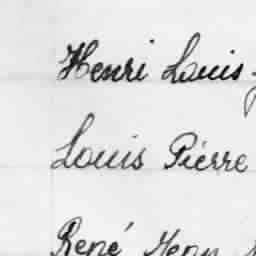 Henri Louis
Louis Pierre
René Jean